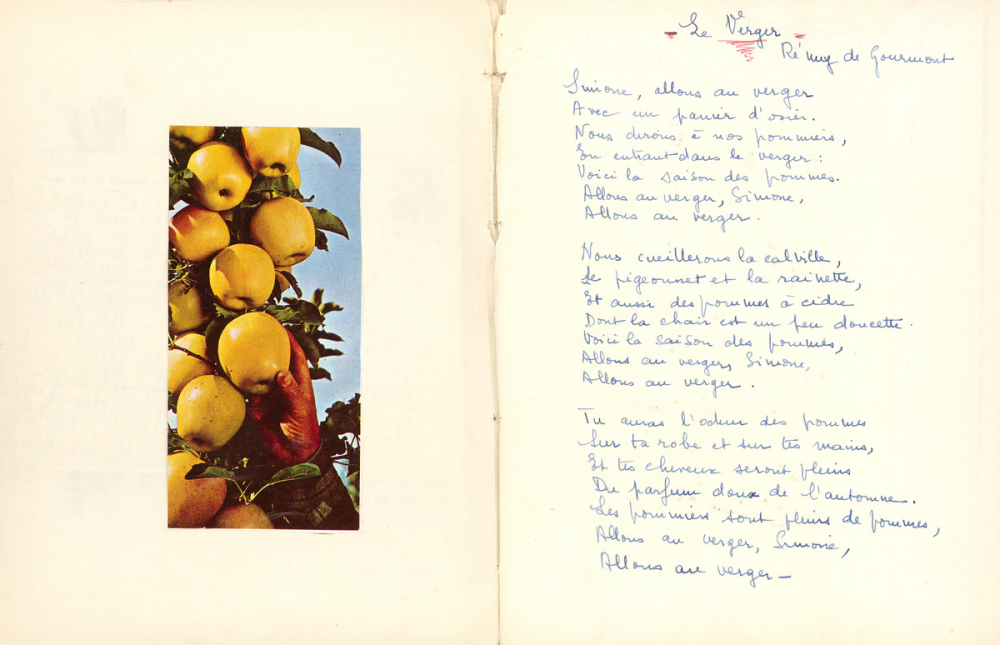 Le Verger
Rémy de Gourmont
Simone, allons au verger
Avec un panier d'osier.
Nous dirons à nos pommiers,
En entrant dans le verger :
Voici la saison des pommes.
Allons au verger, Simone,
Allons au verger.
Nous cueillerons la calville,
Le pigeonnet et la rainette,
Et aussi des pommes à cidre
Dont la chair est un peu doucette.
Voici la saison des pommes,
Allons au verger, Simone,
Allons au verger.
Tu auras l'odeur des pommes
Sur ta robe et sur tes mains,
Et tes cheveux seront pleins
Du parfum doux de l'automne.
Les pommiers sont pleins de pommes,
Allons au verger, Simone,
Allons au verger —